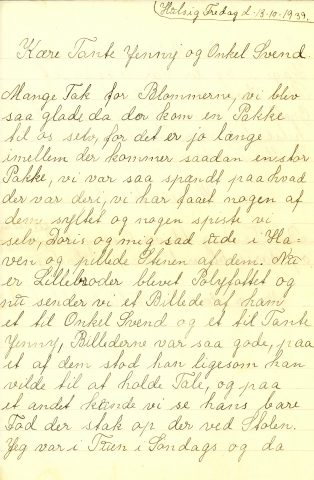 Halsig Fredag d. 13-10-1939.
Kære Tante Yenny og Onkel Svend.
Mange Tak for Blommerne, vi blev
saa glade da der kom en Pakke
til os selv, for det er jo længe
imellem der kommer saadan en stor
Pakke, vi var saa spændt paa hvad
der var deri, vi har faaet nogen af
dem syltet og nogen spiste vi
selv, Doris og mig sad ude i Ha-
ven og pillede Stenen af dem. Nu
er Lillebroder blevet Polyfottet og
nu sender vi et Billede af ham
et til Onkel Svend og et til Tante
Yenny, Billiderne var saa gode, paa
et af dem stod han ligesom han
vilde til at holde Tale, og paa
et andet kunde vi se hans bare
Fod der stak op der ved Stolen.
Yeg var i Tiren i Søndags og da